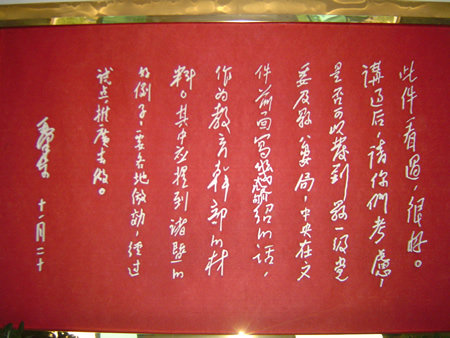 此件看過，很好。
講過后，請你們考慮，
是否可以發到縣一级党
委及县公安局，中央在文
件前面寫幾句介紹的话，
作为教育幹部的材
料。其中应提到諸暨的
好例子，要各地倣効，經过
試点推廣去做。
毛泽东
十一月二十